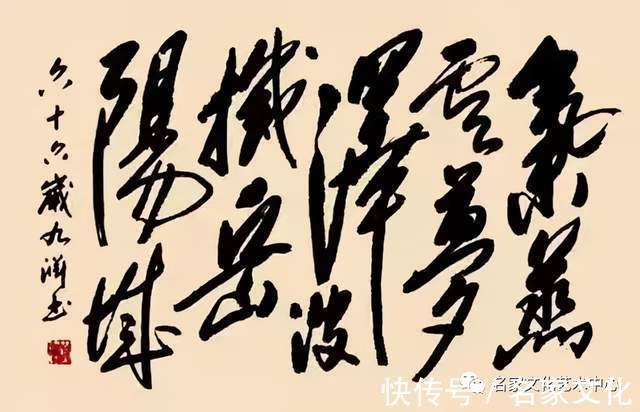 氣蒸
雲夢
澤波
撼岳
陽城
六十六歲九书
名家文化艺术中心
快传号/名家文化